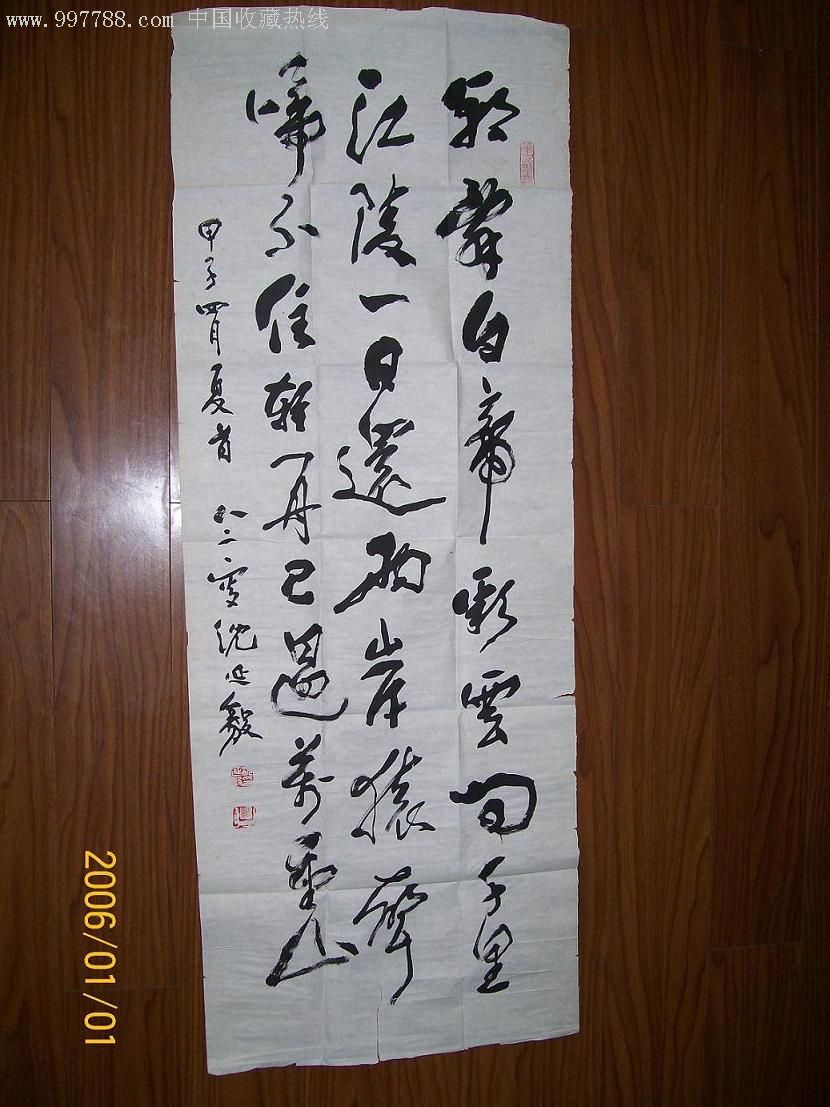 www.997788.com 中国收藏热线
朝辭白帝彩雲間千里
江陵一日還兩岸猿聲
啼不住輕舟已過萬重山
甲子四月夏首 八二叟沈延毅
2006/01/01